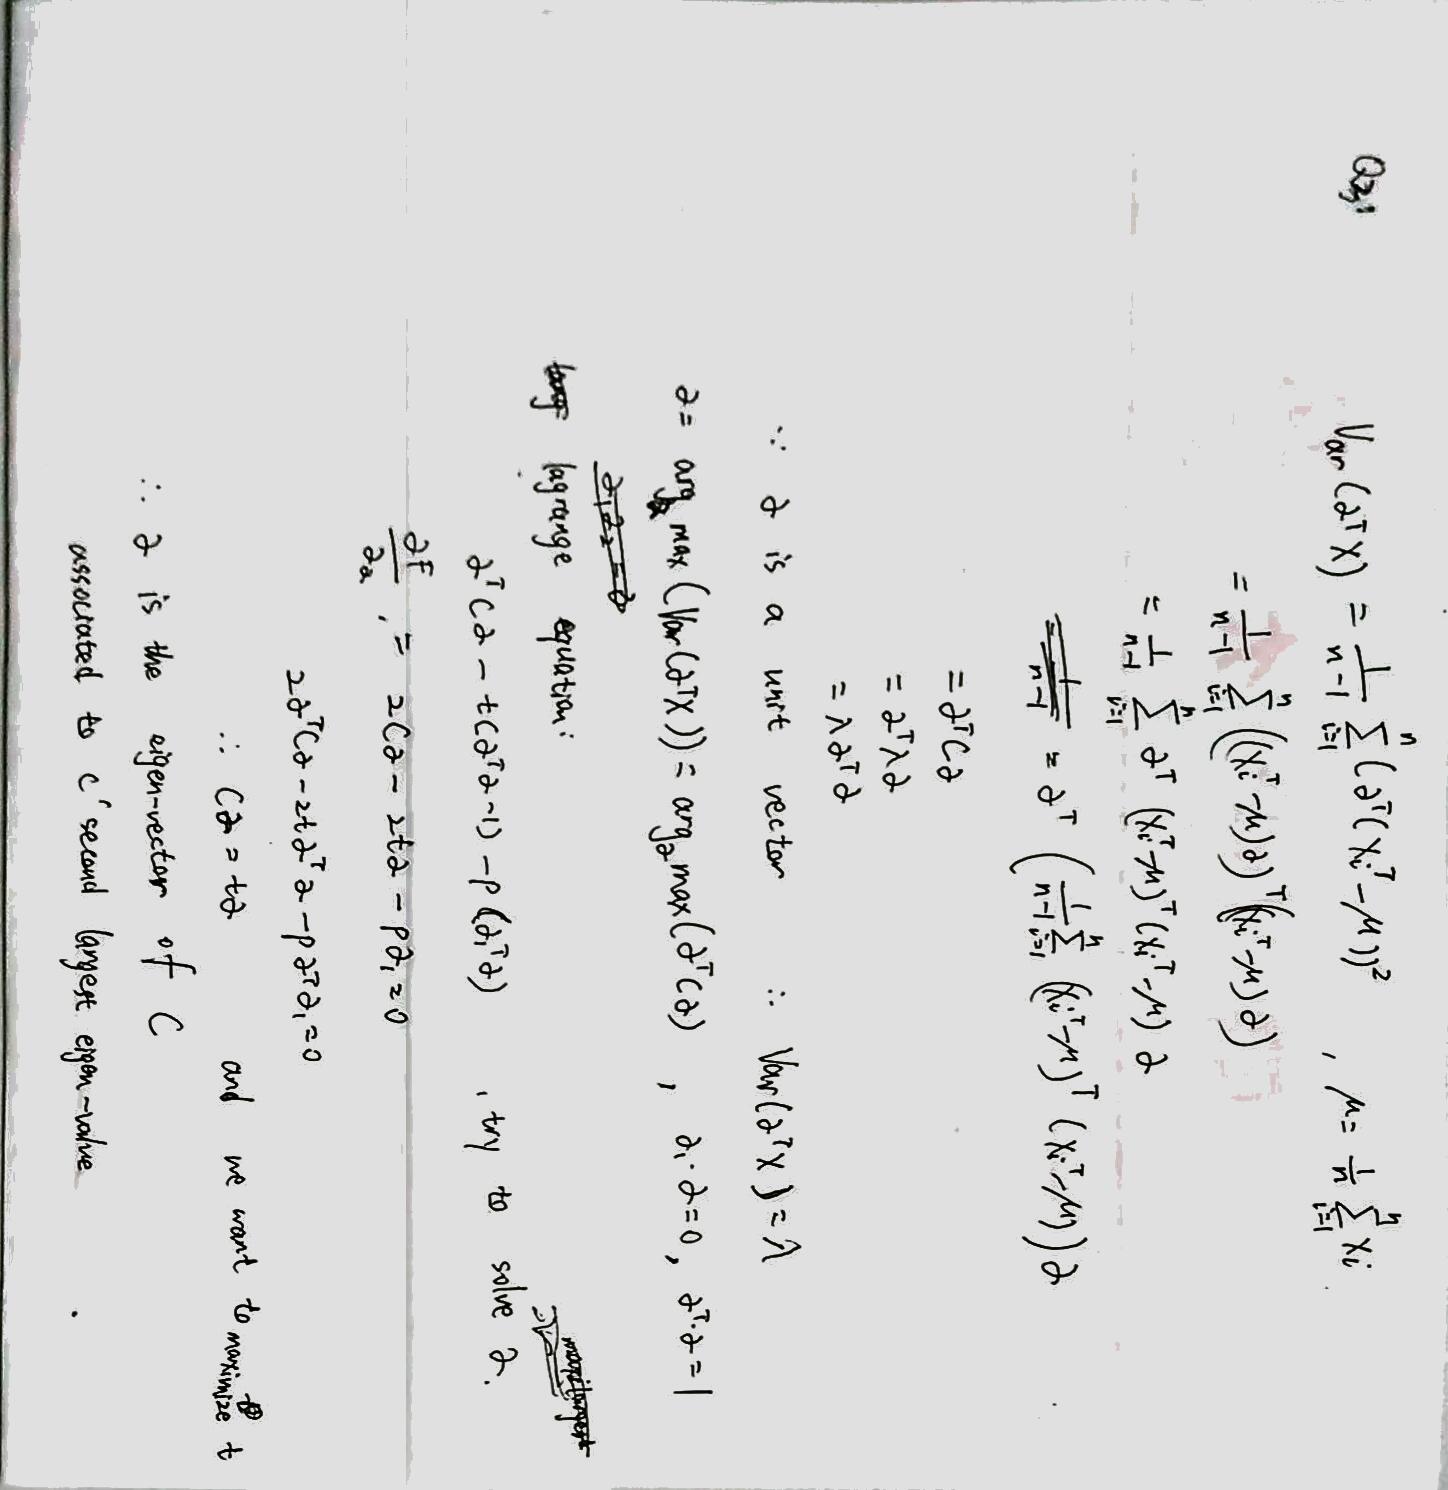 Q3:
Var(∂ᵀX) = 1/(n-1) Σᵢ₌₁ⁿ (∂ᵀ(xᵢᵀ-μ))² , μ = 1/n Σᵢ₌₁ⁿ xᵢ
= 1/(n-1) Σᵢ₌₁ⁿ ((xᵢᵀ-μ)∂)ᵀ((xᵢᵀ-μ)∂)
= 1/(n-1) Σᵢ₌₁ⁿ ∂ᵀ (xᵢᵀ-μ)ᵀ(xᵢᵀ-μ) ∂
= ∂ᵀ ( 1/(n-1) Σᵢ₌₁ⁿ (xᵢᵀ-μ)ᵀ (xᵢᵀ-μ))∂
= ∂ᵀC∂
= ∂ᵀλ∂
= λ∂ᵀ∂
∵ ∂ is a unit vector ∴ Var(∂ᵀX) = λ
∂ = arg max (Var(∂ᵀX)) = arg∂ max(∂ᵀC∂) , ∂₁·∂=0, ∂ᵀ·∂=1
lagrange equation:
∂ᵀC∂ - t(∂ᵀ∂-1) - p(∂₁ᵀ∂) , try to solve ∂.
∂F/∂a , = 2C∂ - 2t∂ - p∂₁ = 0
2∂ᵀC∂ - 2t∂ᵀ∂ - p∂ᵀ∂₁ = 0
∴ C∂ = t∂ and we want to maximize t
∴ ∂ is the eigen-vector of C
associated to C' second largest eigen-value.